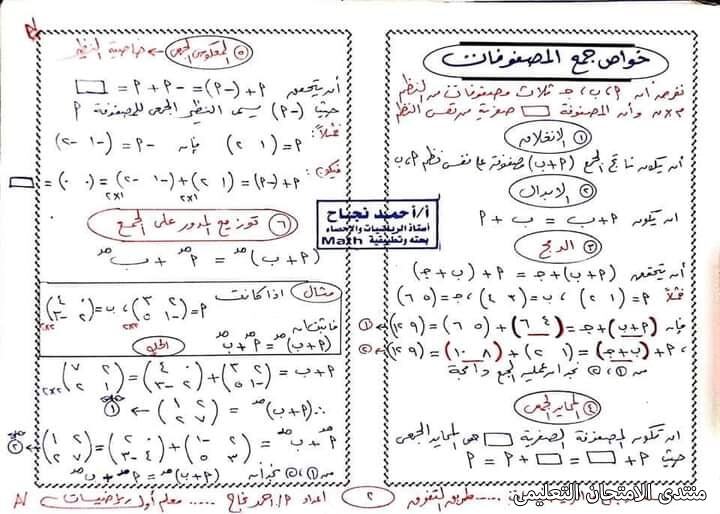 خواص جمع المصفوفات
نفرض أن P، ب، جـ ثلاث مصفوفات من النظم
م×ن وأن المصفوفة □ صفرية من نفس النظم
① الانغلاق
أن يكون ناتج الجمع (P+ب) مصفوفة على نفس نظم P، ب
② الابدال
أن يكون P+ب = ب+P
③ الدمج
أن يتحقق (P+ب)+جـ = P+(ب+جـ)
فمثلاً P=(١ ٢)، ب=(٣ ٤)، جـ=(٥ ٦)
فإن (P+ب)+جـ=(٤ ٦)+(٥ ٦)=(٩ ١٢) ← ①
P+(ب+جـ)=(١ ٢)+(٨ ١٠)=(٩ ١٢) ← ②
من ①، ② نجد أن عملية الجمع دامجة
④ المحايد الجمعي
أن تكون المصفوفة الصفرية □ هي المحايد الجمعي
حيث P+□=□+P=P
⑤ المعكوس الجمعي ← خاصية النظير
أن يتحقق P+(-P)=-P+P=□
حيث (-P) يسمى النظير الجمعي للمصفوفة P
فمثلاً: P=(١ ٢) فإن -P=(-١ -٢)
فيكون: P+(-P)=(١ ٢)+(-١ -٢)=(٠ ٠)=□
١×٢ ١×٢
⑥ توزيع المدور على الجمع
(P+ب)مد = Pمد + بمد
مثال إذا كانت
P=(٢ ٣ ٢
-١ ٥)، ب=(٠ ٤
٢ -٣)
٢×٢ ٢×٢
فاثبت أن
(P+ب)مد=Pمد+بمد
الحلو
P+ب=(٢ ٣
-١ ٥)+(٠ ٤
٢ -٣)=(٢ ٧
١ ٢) ٢×٢
∴(P+ب)مد ← (٢ ١
٧ ٢) ①
Pمد+بمد=(٢ -١
٣ ٥)+(٠ ٢
٤ -٣)=(٢ ١
٧ ٢) ← ②
من ①، ② نجد أن (P+ب)مد=Pمد+بمد
أ/أحمد نجاح
أستاذ الرياضيات والإحصاء
بحته وتطبيقية Math
طريق التفوق
٢
اعداد P/احمد نجاح ..... معلم أول رياضيات
منتدى الامتحان التعليمى